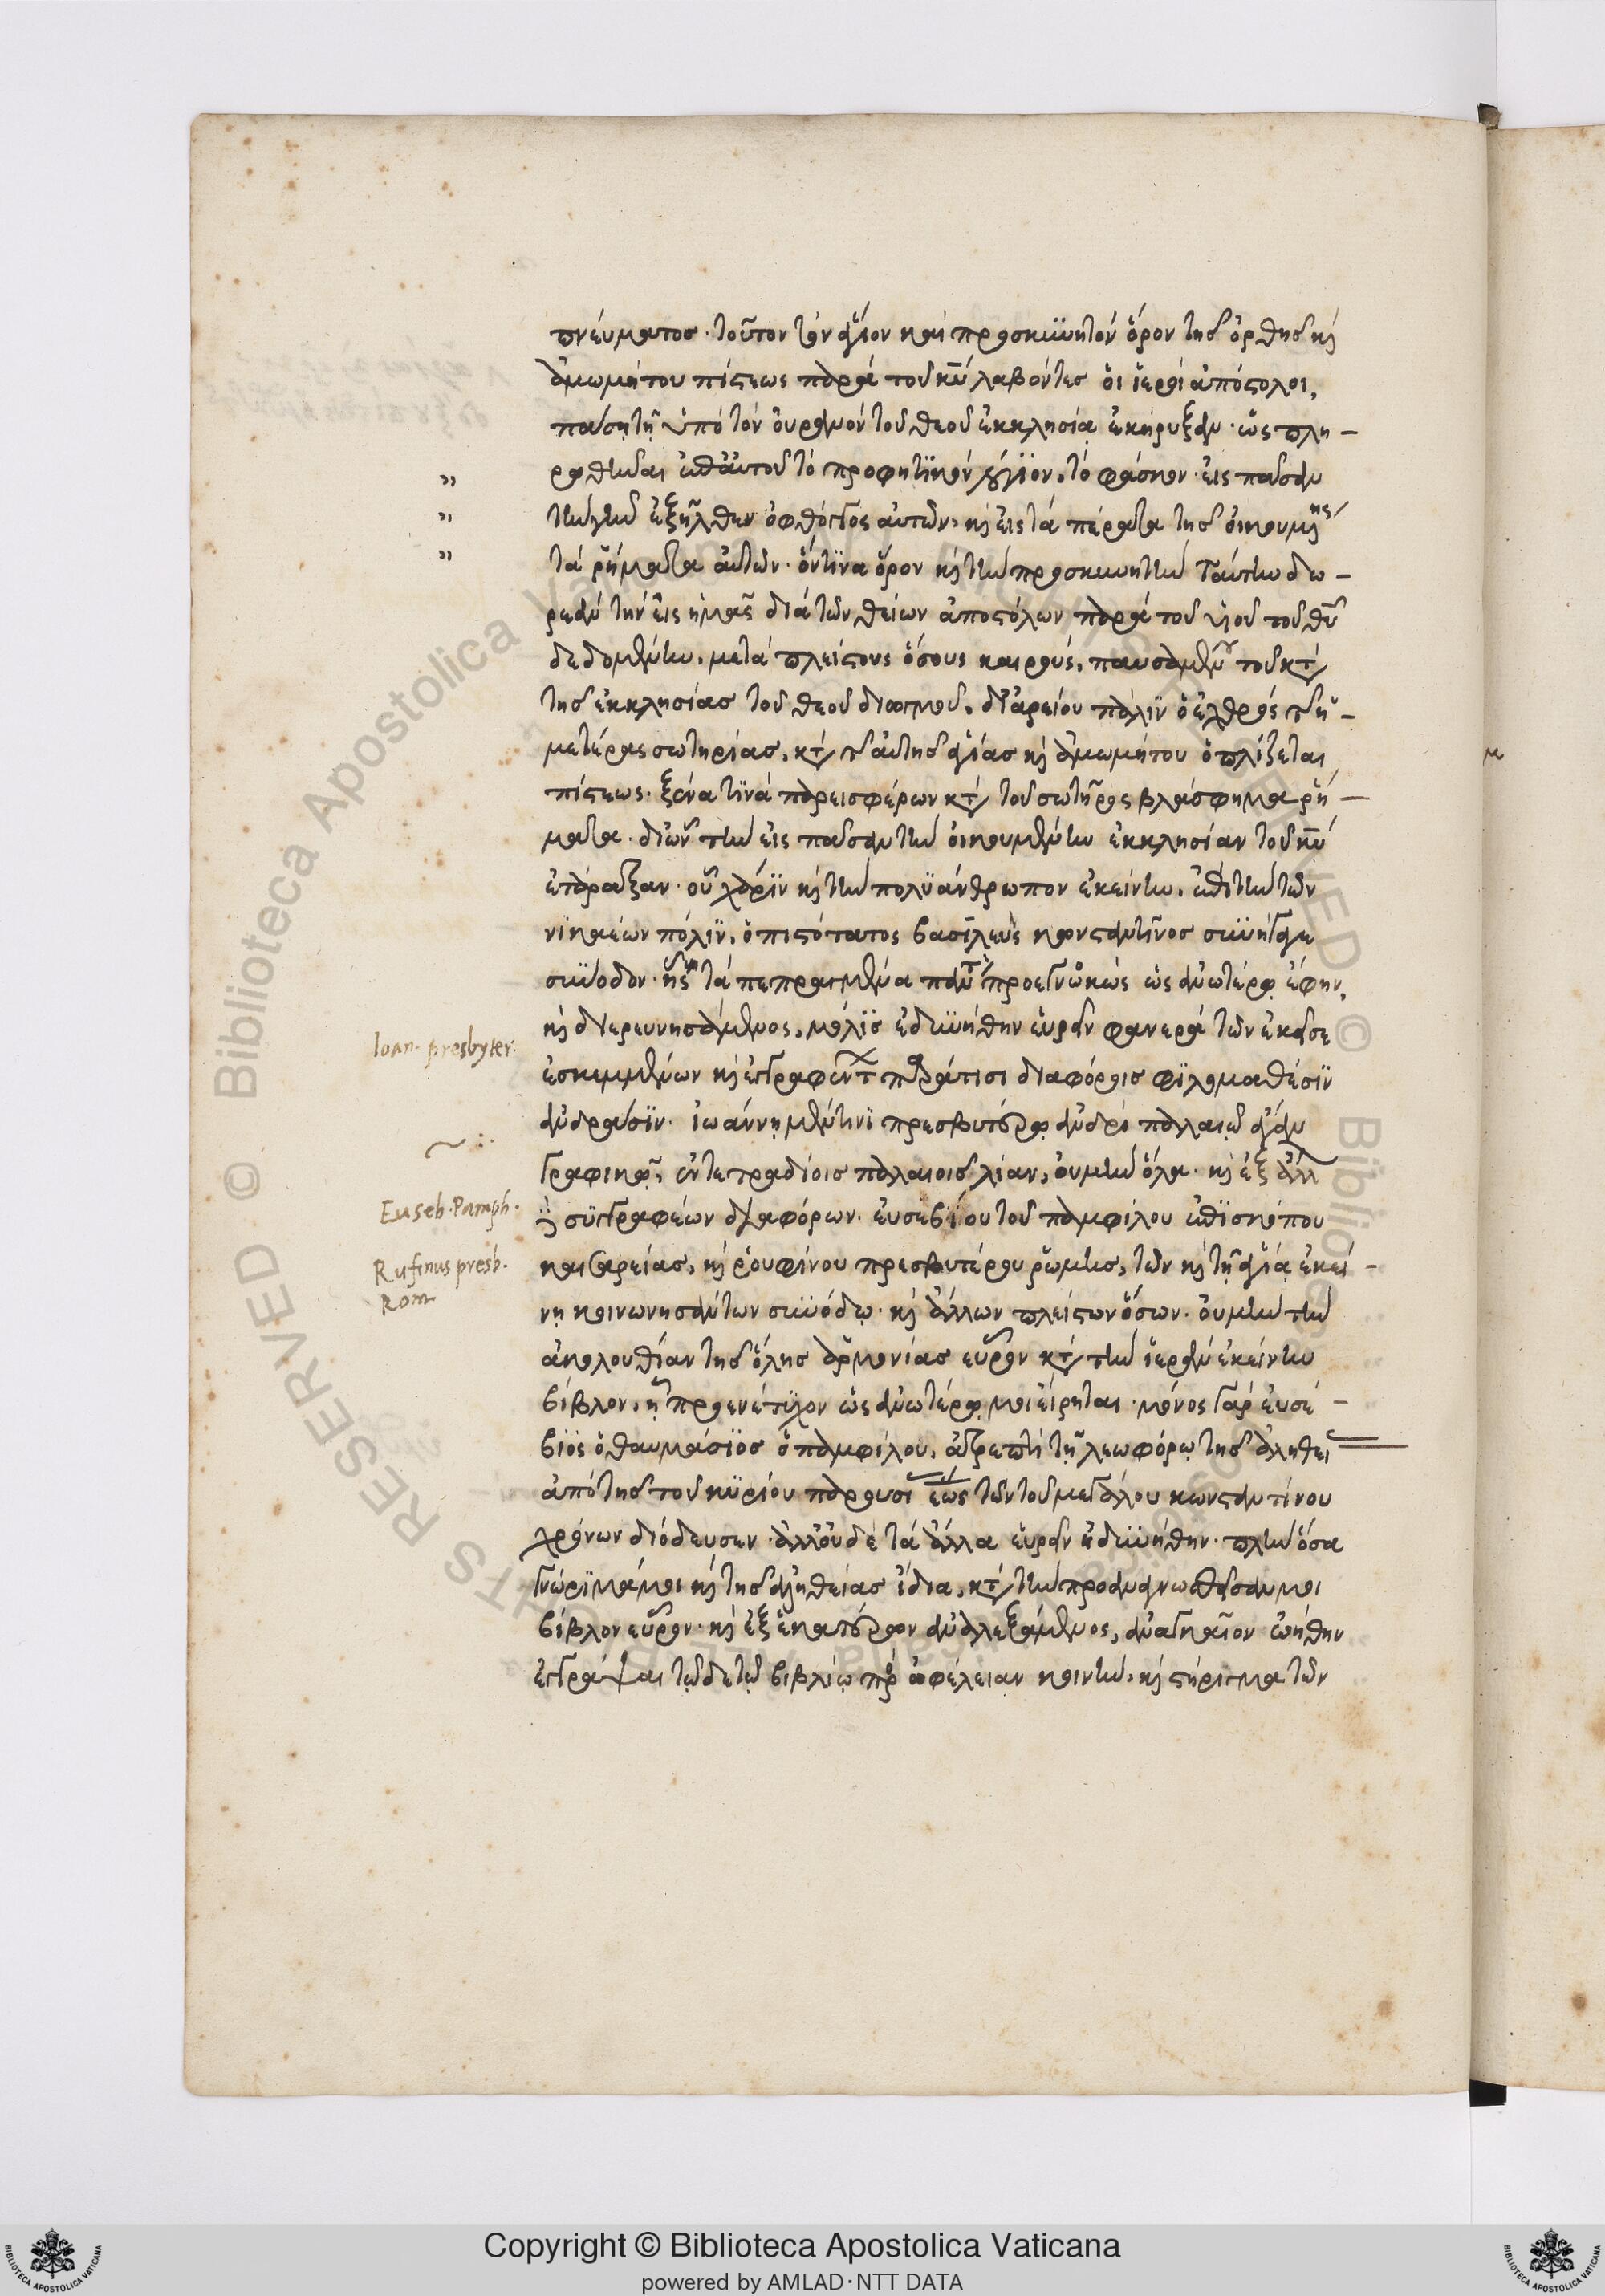 πνεύματος· τοῦτον τὸν ἅγιον καὶ προσκυνητὸν ὅρον τῆς ὀρθῆς καὶ
ἀμωμήτου πίστεως παρὰ τοῦ κυ λαβόντες ὁι ἱεροὶ ἀπόστολοι,
πάσῃ τῇ ὑπὸ τὸν ὀυρανὸν τοῦ θεοῦ ἐκκλησία ἐκήρυξαν· ὡς πλη-
ρωθῆναι ἐπ' ἀυτοῦ τὸ προφητικὸν λόγιον, τὸ φάσκον· εἰς πᾶσαν
" τὴν γῆν ἐξῆλθεν ὁ φθόγγος ἀυτῶν, καὶ εἰς τὰ πέρατα τῆς οἰκουμένης
" τὰ ῥήματα ἀυτῶν· ὅντινα ὅρον καὶ τὴν προσκυνητὴν ταύτην δω-
" ρεὰν τὴν εἰς ἡμᾶς διὰ τῶν θείων ἀποστόλων παρὰ τοῦ υἱοῦ τοῦ θυ
δεδομένην, μετὰ πλείστους ὅσους καιροὺς, παυσαμένου τοῦ κατὰ
τῆς ἐκκλησίας τοῦ θεοῦ διωγμοῦ, δι' ἀρείου πάλιν ὁ ἐχθρὸς τῆς ἡ-
μετέρας σωτηρίας, κατὰ τῆς ἀυτῆς ἁγίας καὶ ἀμωμήτου ὁπλίζεται
πίστεως· ξένα τινὰ παρεισφέρων κατὰ τοῦ σωτῆρος βλάσφημα ῥή-
ματα· δι' ὧν τὴν εἰς πᾶσαν τὴν οἰκουμένην ἐκκλησίαν τοῦ κυ
ἐτάραξαν· οὗ χάριν καὶ τὴν πολυάνθρωπον ἐκείνην, ἐπὶ τὴν τῶν
νικαέων πόλιν, ὁ πιστότατος βασιλεὺς κωνσταντῖνος συνήγαγε
σύνοδον· ἧς τὰ πεπραγμένα πάντα προεγνωκὼς ὡς ἀνωτέρω ἔφην,
Ioan. presbyter. καὶ διερευνησάμενος, μόλις ἐδυνήθην εὑρεῖν φανερὰ τῶν ἐκεῖσε
ἐσκεμμένων καὶ ἐγγραφέντ παρά τισι διαφόροις φιλομαθέσιν
ἀνδράσιν· ἰωάννῃ μέν τινι πρεσβυτέρῳ ἀνδρὶ παλαιῷ ἄγαν
γραφικῷ, ἐν τετραδίοις παλαιοῖς λίαν, οὐ μὴν ὅλα· καὶ ἐξ ἄλλ
Euseb. Pamph. συγγραφέων διαφόρων· ἐυσεβίου τοῦ παμφίλου ἐπισκόπου
Rufinus presb.
Rom καισαρείας, καὶ ῥουφίνου πρεσβυτέρου ῥώμης, τῶν καὶ τῇ ἁγίᾳ ἐκεί-
νῃ κοινωνησάντων συνόδῳ· καὶ ἄλλων πλείστων ὅσων· οὐ μὴν τὴν
ἀκολουθίαν τῆς ὅλης ἁρμονίας εὗρον κατὰ τὴν ἱερὰν ἐκείνην
βίβλον, ᾗ προενέτυχον ὡς ἀνωτέρω μοι εἴρηται· μόνος γὰρ ἐυσέ-
βιος ὁ θαυμάσιος ὁ παμφίλου, ἀτρεπτὶ τῇ λεωφόρῳ τῆς ἀληθει
ἀπὸ τῆς τοῦ κυρίου παρουσι ἕως τῶν τοῦ μεγάλου κωνσταντίνου
χρόνων διόδευσεν· ἀλλ' οὐδὲ τὰ ἄλλα εὑρεῖν ἐδυνήθην· πλὴν ὅσα
γνώριμά μοι καὶ τῆς ἀληθείας ἴδια, κατὰ τὴν προαναγνωσθεῖσαν μοι
βίβλον εὗρον· καὶ ἐξ ἑκατέρων ἀναλεξάμενος, ἀναγκαῖον ᾠήθην
ἐγγράψαι τῷδε τῷ βιβλίῳ πρὸς ὠφέλειαν κοινὴν, καὶ στήριγμα τῶν
Copyright © Biblioteca Apostolica Vaticana
powered by AMLAD·NTT DATA